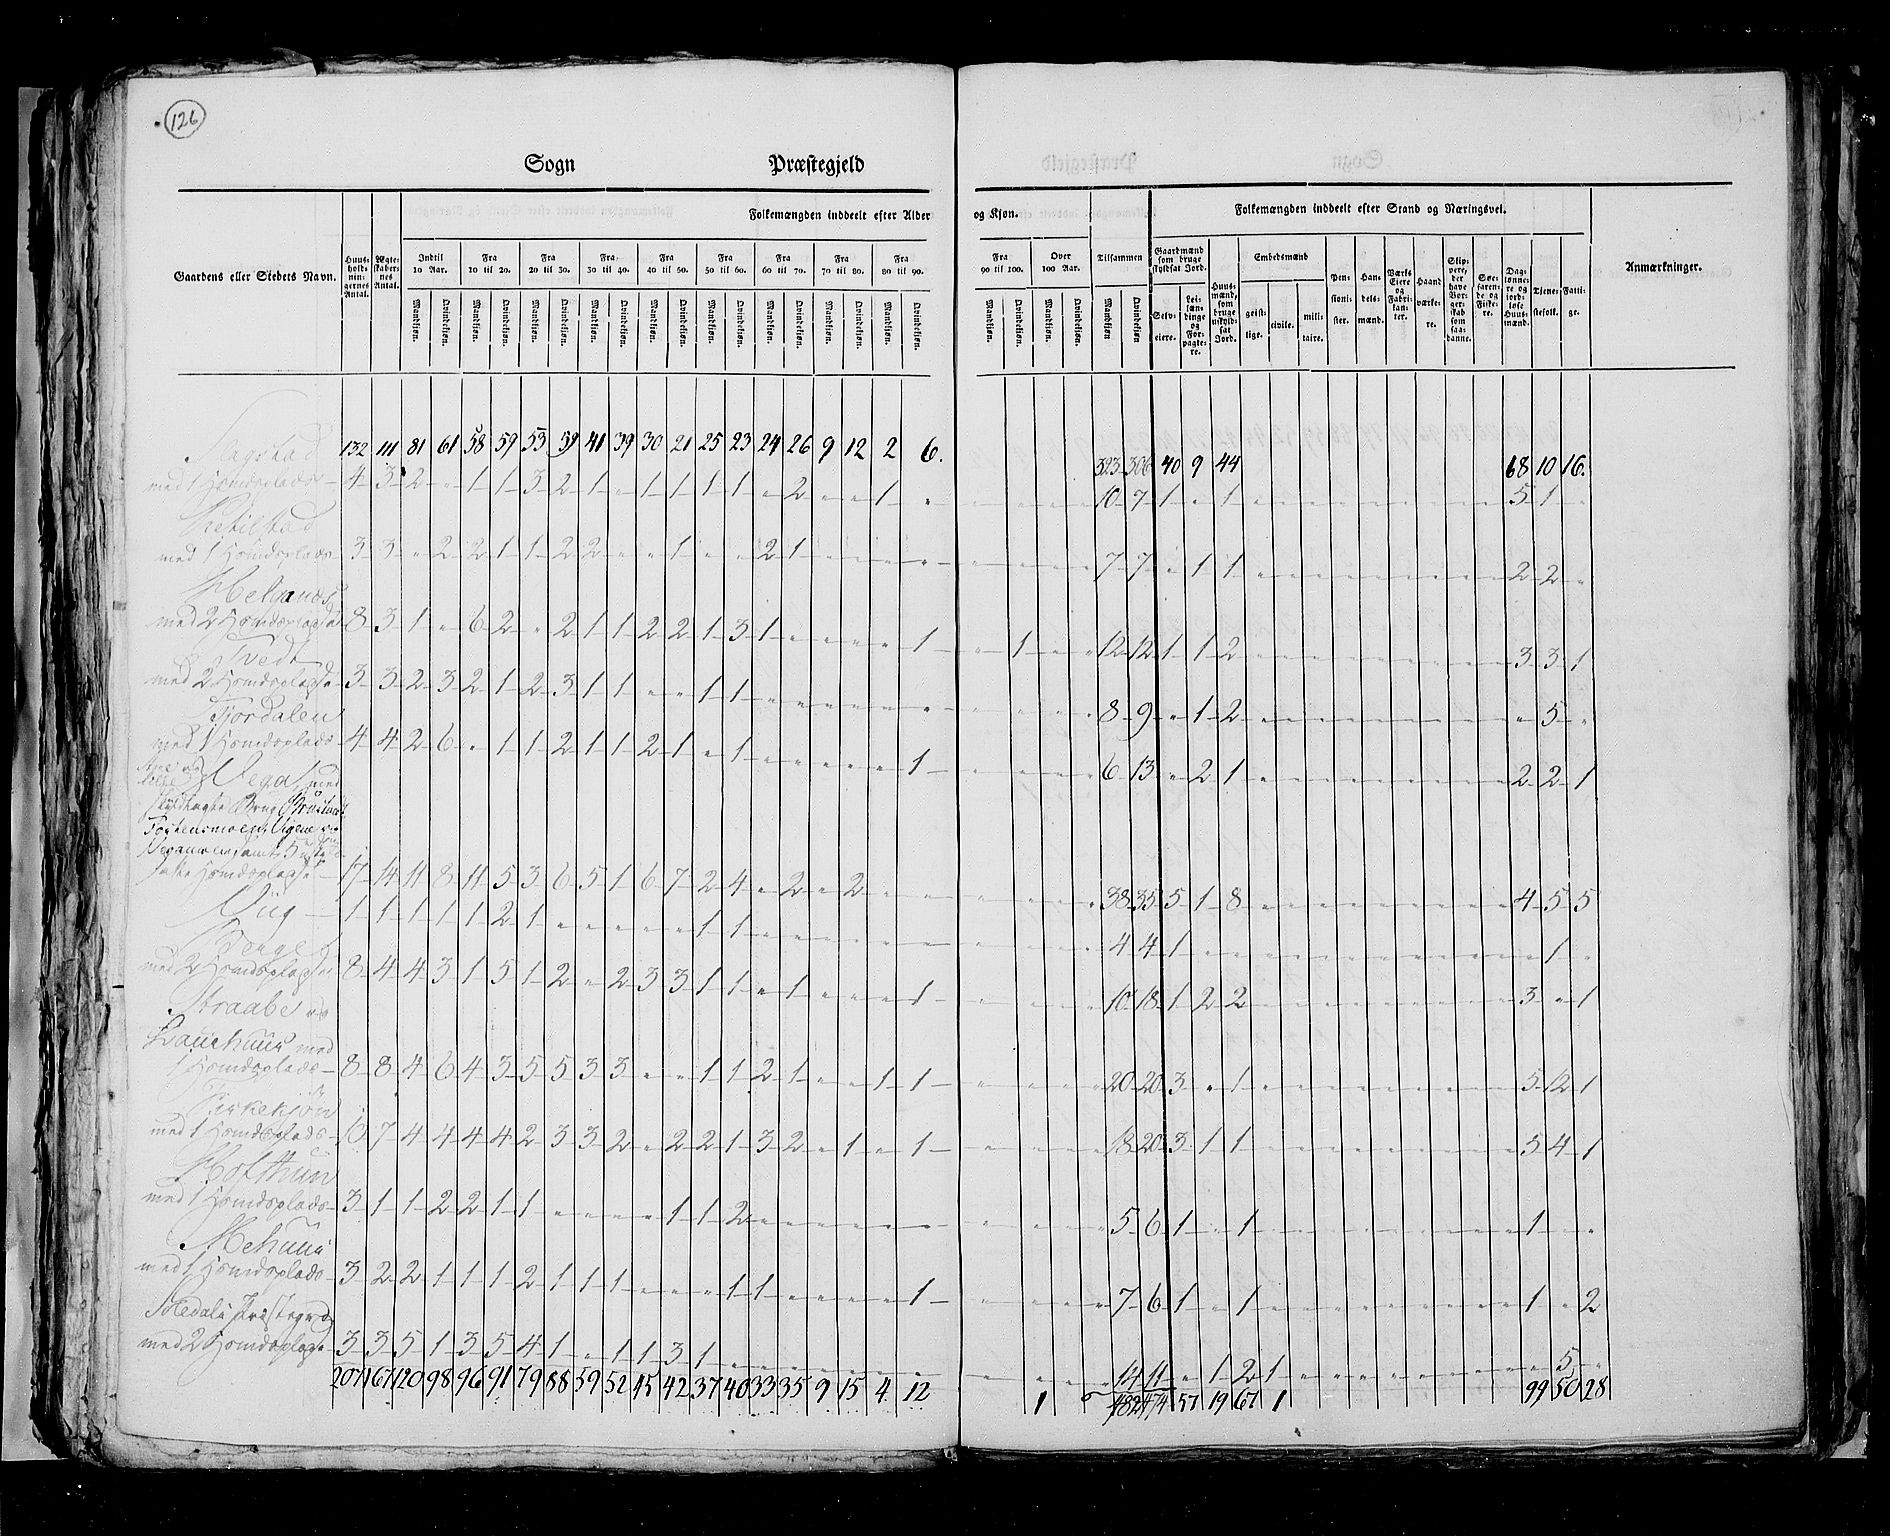 126
Sogn Præstegjeld
Folkemængden inddeelt efter Alder og Kjøn. Folkemængden inddeelt efter Stand og Næringsvei.
Gaardens eller Stedets Navn. Huus-holdnin-gernes Antal. Ægte-skaber-nes Antal. Indtil 10 Aar. Fra 10 til 20. Fra 20 til 30. Fra 30 til 40. Fra 40 til 50. Fra 50 til 60. Fra 60 til 70. Fra 70 til 80. Fra 80 til 90. Fra 90 til 100. Over 100 Aar. Tilsammen Gaardmænd som bruge skyldsat Jord. Huus-mænd, som bruge uskyld-sat Jord. Embedsmænd Pen-sioni-ster. Han-dels-mænd. Værks Eiere og Fabri-kan-ter. Haand værke-re. Slip-pere, der have Bor-ger-skab som saa-danne. Søe-farende og Fiske-re. Dag-lønne-re og jord-løse Huus-mænd. Tjene-stefolk. Fatti-ge. Anmærkninger.
Mandkjøn. Qvindekjøn. Mandkjøn. Qvindekjøn. Mandkjøn. Qvindekjøn. Mandkjøn. Qvindekjøn. Mandkjøn. Qvindekjøn. Mandkjøn. Qvindekjøn. Mandkjøn. Qvindekjøn. Mandkjøn. Qvindekjøn. Mandkjøn. Qvindekjøn. Mandkjøn. Qvindekjøn. Mandkjøn. Qvindekjøn. Mandkjøn Qvindekjøn Selv-eiere. Lei-læn-dinge og For-pagte-re. geist-lige. civile. mili-taire.
132 111 81 61 58 59 53 59 41 39 30 21 25 23 24 26 9 12 2 6. 323 306 40 9 44 68 10 16.
med 1 Huusmdsplads 4 3 2 " 1 1 3 2 1 " 1 1 1 1 " 2 " " 1 " 10 7 1 " 1 5 1 "
med 1 Huusmdsplads 3 3 " 2 2 1 1 2 2 " " 1 " " 2 1 7 7 " 1 1 2 2 "
med 2 8 3 1 " 6 2 " 2 1 1 2 2 1 3 1 " " " " 1 " 1 " " 12 12 1 1 2 3 3 1
Tvedt
med 2 3 3 2 3 2 1 2 3 1 1 " " 1 1 8 9 " 1 2 " 5 "
Fjordalen
med 1 4 4 2 6 " 1 1 2 1 1 2 1 " 1 " " " " " 1 6 13 " 2 1 2 2 1
Vegal, med
17 14 11 8 11 5 3 6 5 1 6 7 2 4 " 2 " 2 " " 38 35 5 1 8 4 5 5
Viig 1 1 1 1 1 2 1 " " " " " 1 1 4 4 1 " 1 "
Berge
med 2 8 4 4 3 1 5 1 2 " 2 3 3 1 1 " 1 " " " 1 10 18 1 2 2 3 " 1
Straabe og
med
1 8 8 4 6 4 3 5 5 3 3 " " 1 1 2 1 " " 1 1 20 20 3 " 1 5 12 1
med 1 10 7 4 4 4 4 2 3 3 2 " 2 2 1 3 2 " 1 " 1 18 20 3 1 1 5 4 1
Hofthun
med 1 3 1 1 2 2 1 1 " " " " 1 1 2 5 6 1 " 1 1 " "
Mehuus
med 1 3 2 2 1 1 1 2 1 1 1 " " " 1 1 " " " " 1 7 6 1 " 1 1 " 2
med 2 3 3 5 1 3 5 4 1 " 1 1 3 1 14 11 " 1 2 1 " 5 "
207 167 120 98 96 91 79 88 59 52 45 42 37 40 33 35 9 15 4 12 1 482 474 57 19 67 1 99 50 28